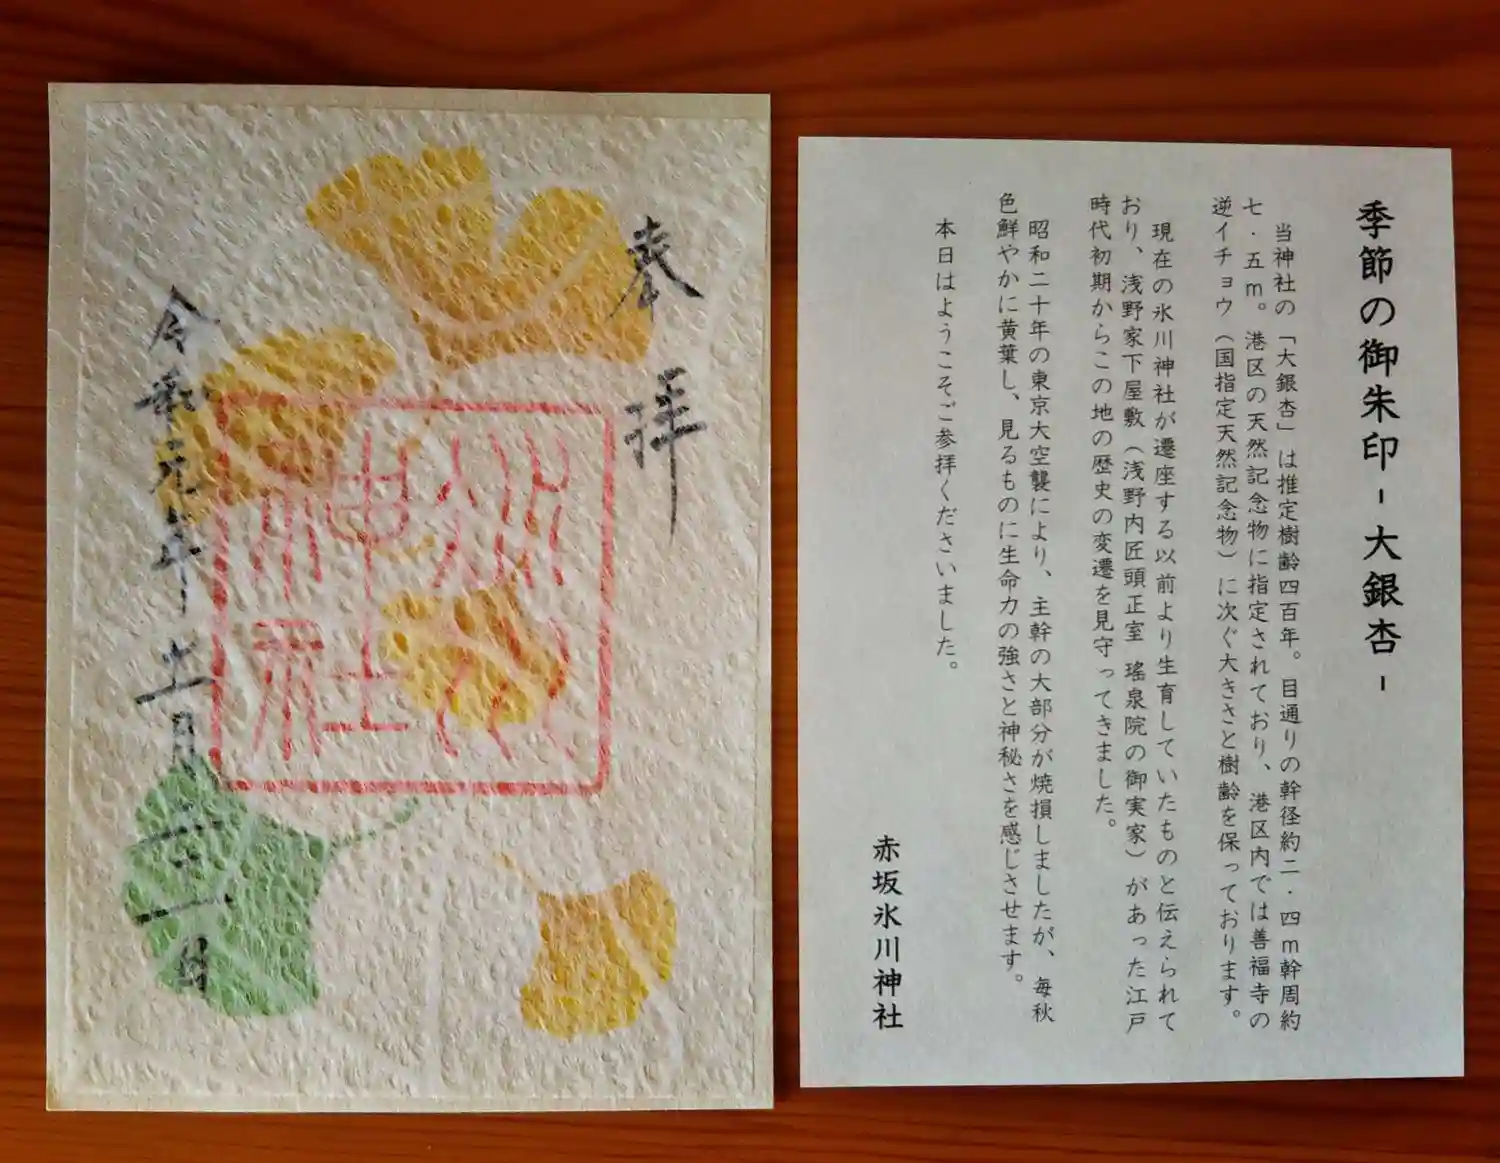 季節の御朱印-大銀杏-
当神社の「大銀杏」は推定樹齢四百年。目通りの幹径約二・四m幹周約
七・五m。港区の天然記念物に指定されており、港区内では善福寺の
逆イチョウ（国指定天然記念物）に次ぐ大きさと樹齢を保っております。
現在の氷川神社が遷座する以前より生育していたものと伝えられて
おり、浅野家下屋敷（浅野内匠頭正室 瑤泉院の御実家）があった江戸
時代初期からこの地の歴史の変遷を見守ってきました。
昭和二十年の東京大空襲により、主幹の大部分が焼損しましたが、毎秋
色鮮やかに黄葉し、見るものに生命力の強さと神秘さを感じさせます。
本日はようこそご参拝くださいました。
赤坂氷川神社
奉拝
氷川
神社
令和元年